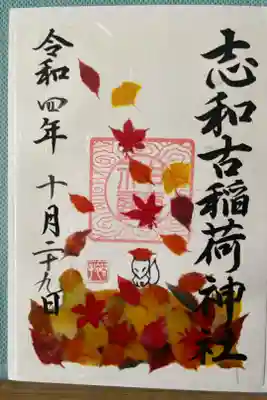 志和古稲荷神社
令和四年 十月二十九日